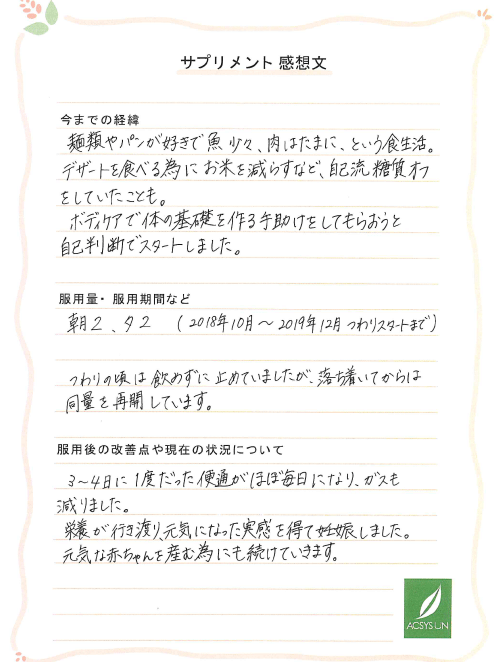 サプリメント 感想文
今までの経緯
麺類やパンが好きで魚少々、肉はたまに、という食生活。
デザートを食べる為にお米を減らすなど、自己流糖質オフ
をしていたことも。
ボディケアで体の基礎を作る手助けをしてもらおうと
自己判断でスタートしました。
服用量・服用期間など
朝2、夕2 (2018年10月～2019年12月 つわりスタートまで)
つわりの頃は飲めずに止めていましたが、落ち着いてからは
同量を再開しています。
服用後の改善点や現在の状況について
3～4日に1度だった便通がほぼ毎日になり、ガスも
減りました。
栄養が行き渡り、元気になった実感を得て妊娠しました。
元気な赤ちゃんを産む為にも続けていきます。
ACSYS LIN